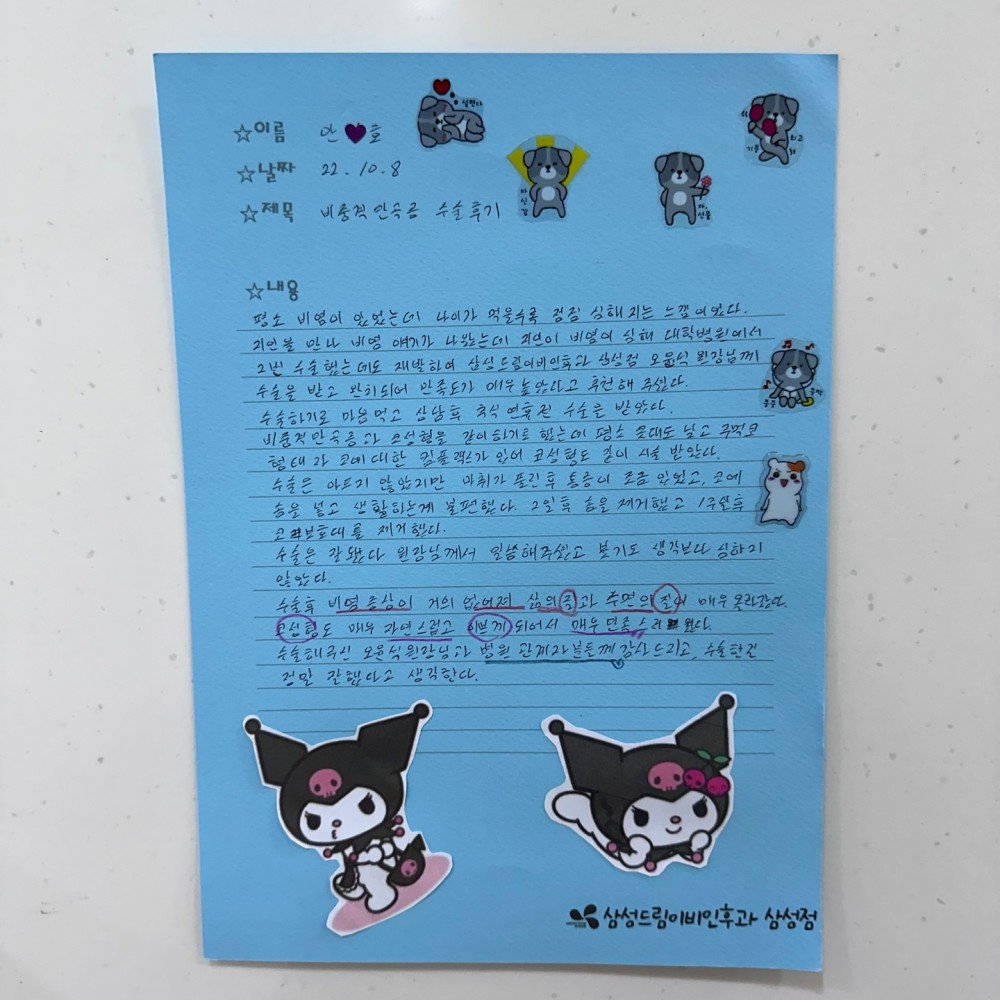 ☆이름 안♥호
☆날짜 22.10.8
☆제목 비중격만곡증 수술후기
실현다
자신감
자, 선물
기분 최고
쿵쿵 쿵짝
☆내용
평소 비염이 있었는데 나이가 먹을수록 점점 심해지는 느낌이었다.
지인을 만나 비염 얘기가 나왔는데 지인이 비염이 심해 대학병원에서
2번 수술했는데도 재발하여 삼성드림이비인후과 삼성점 오윤식 원장님께
수술을 받고 완치되어 만족도가 매우높았다고 추천해 주셨다.
수술하기로 마음먹고 상담후 추석 연휴전 수술을 받았다.
비중격만곡증과 코성형을 같이하기로 했는데 평소 콧대도 낮고 주먹코
형태라 코에대한 컴플렉스가 있어 코성형도 같이 시술 받았다.
수술은 아프지 않았지만 마취가 풀린후 통증이 조금 있었고, 코에
솜을 넣고 생활하는게 불편했다. 2일후 솜을 제거했고 1주일후
코보호대를 제거했다.
수술은 잘됐다 원장님께서 말씀해주셨고 붓기도 생각보다 심하지
않았다.
수술후 비염증상이 거의 없어져 삶의질과 수면의질이 매우 올라갔다.
코성형도 매우 자연스럽고 이쁘게 되어서 매우만족스러웠다.
수술해주신 오윤식원장님과 병원 관계자분들께 감사드리고, 수술한건
정말 잘했다고 생각한다.
삼성드림이비인후과 삼성점